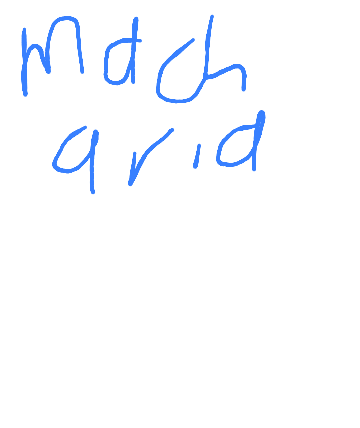 Mach
arid